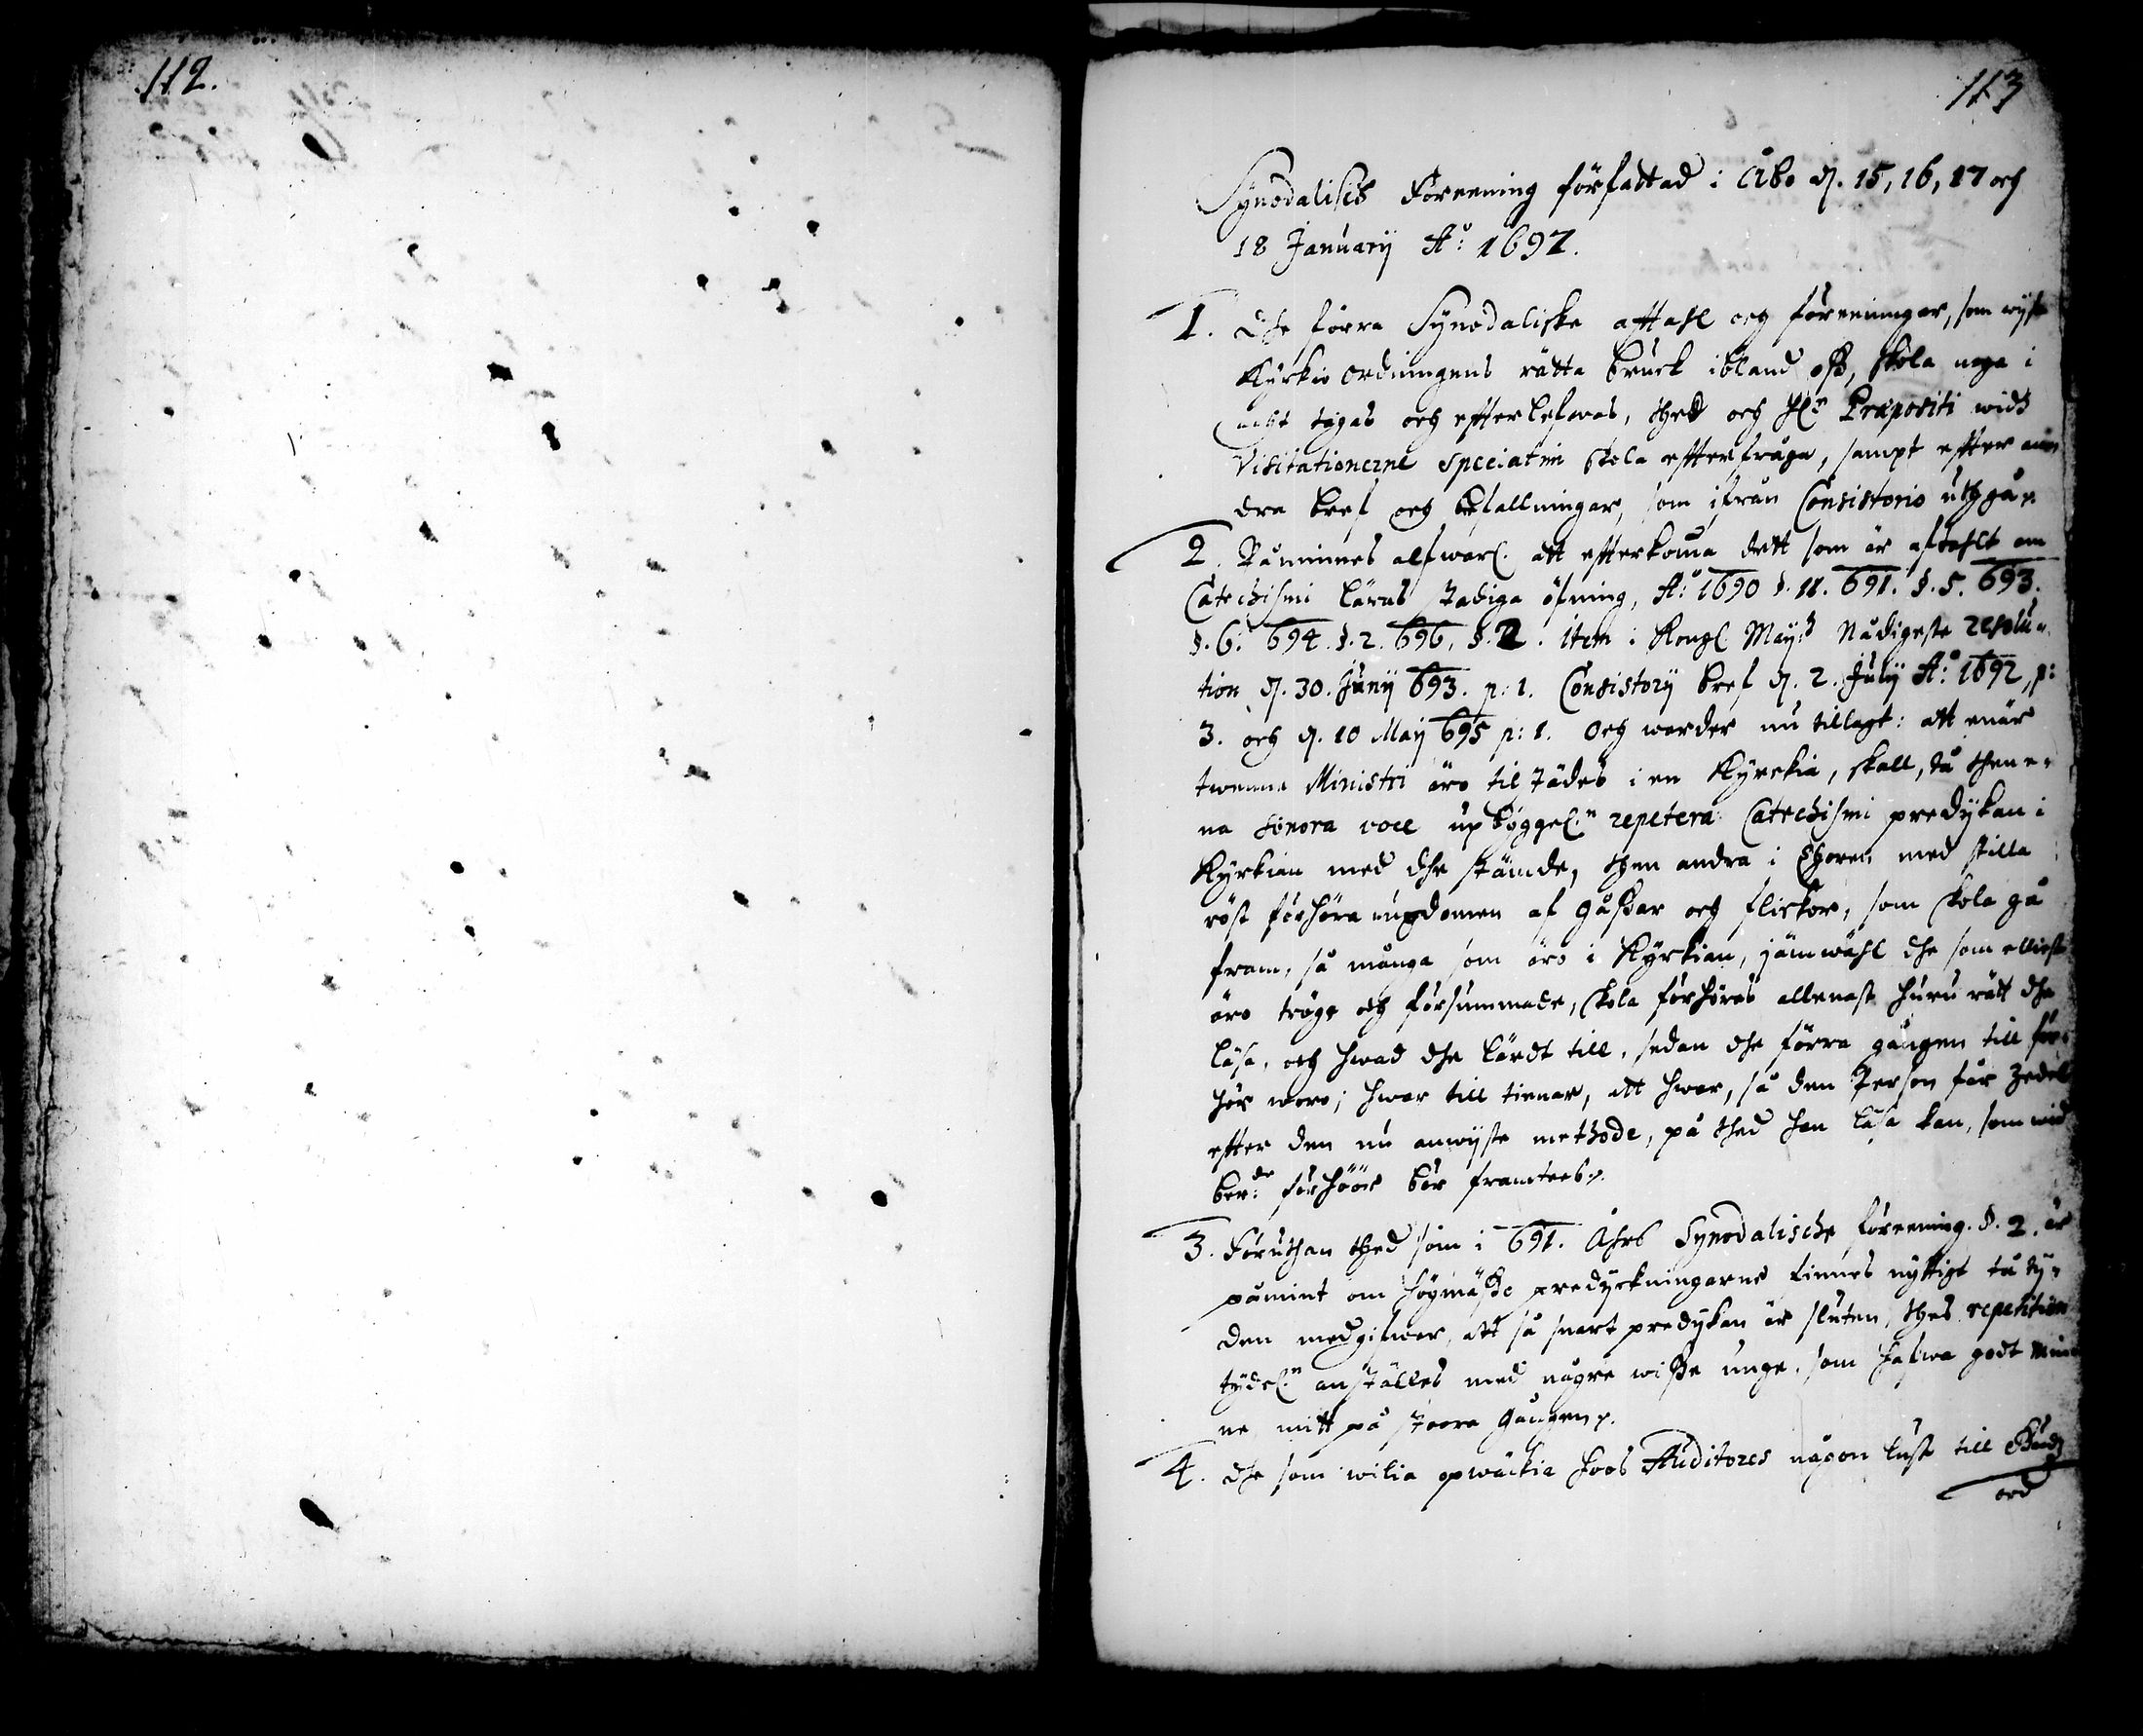 112.
113
Synodalisch Föreening författad i Åbo d. 15, 16, 17 och
18 Januarij Aº: 1697.
1. Dhe förra Synodaliske aftahl och föreeningar, som wijsa
Kyrkio Ordningens rätta bruck ibland oss, skola noga i
acht tagas och efterlefwas, thed och H:r Præpositi widh
Visitationerne speciatim skola efterfråga, sampt efter an
dra bref och befallningar, som ifrån Consistorio uthgå.
2. Påminnes alfwarl. att efterkomma dett som är aftahlt om
Catechismi läras stadiga öfning, Aº: 1690 §. 11. 691. §. 5. 693.
§. 6. 694. §. 2. 696. §. 2. item i Kongl. May:tz Nådigeste resolu-
tion, d. 30. Junij 693. p: 1. Consistorij bref d. 2. Julij Aº: 1692, p:
3. och d. 10 Maij 695 p: 1. Och warder nu tillagt: att enär
twenne Ministri äro tilstädes i en Kyrckia, skall, då then e-
na sonora voce upbyggel:n repetera Catechismi predykan i
Kyrkian med dhe stämde, then andra i Choren med stilla
röst förhöra ungdomen af gåssar och flickor, som skola gå
fram, så många som äro i Kyrkian, jämwähl dhe som elliest
äro tröge och försummade, skola förhöras allenast huru rätt dhe
läsa, och hwad dhe lärdt till, sedan dhe förra gången till för-
hör woro; hwar till tienar, att hwar, så den Person får Zedel
efter den nu anwijste methode, på thed han läsa kan, som wid
ber:de förhöör bör framtees.
3. Föruthan thed som i 691. Åhrs Synodalische föreening. §. 2. är
påmint om högmässe predyckningarne finnes nyttigt då ty-
den medgifwer, att så snart predykan är sluten, thes repetition
tydel:n anställes med någre wisse unge, som hafwa godt min
ne mitt på stoora Gången.
4. Dhe som wilia opwäckia hoos Auditores någon lust till Gudz
ord